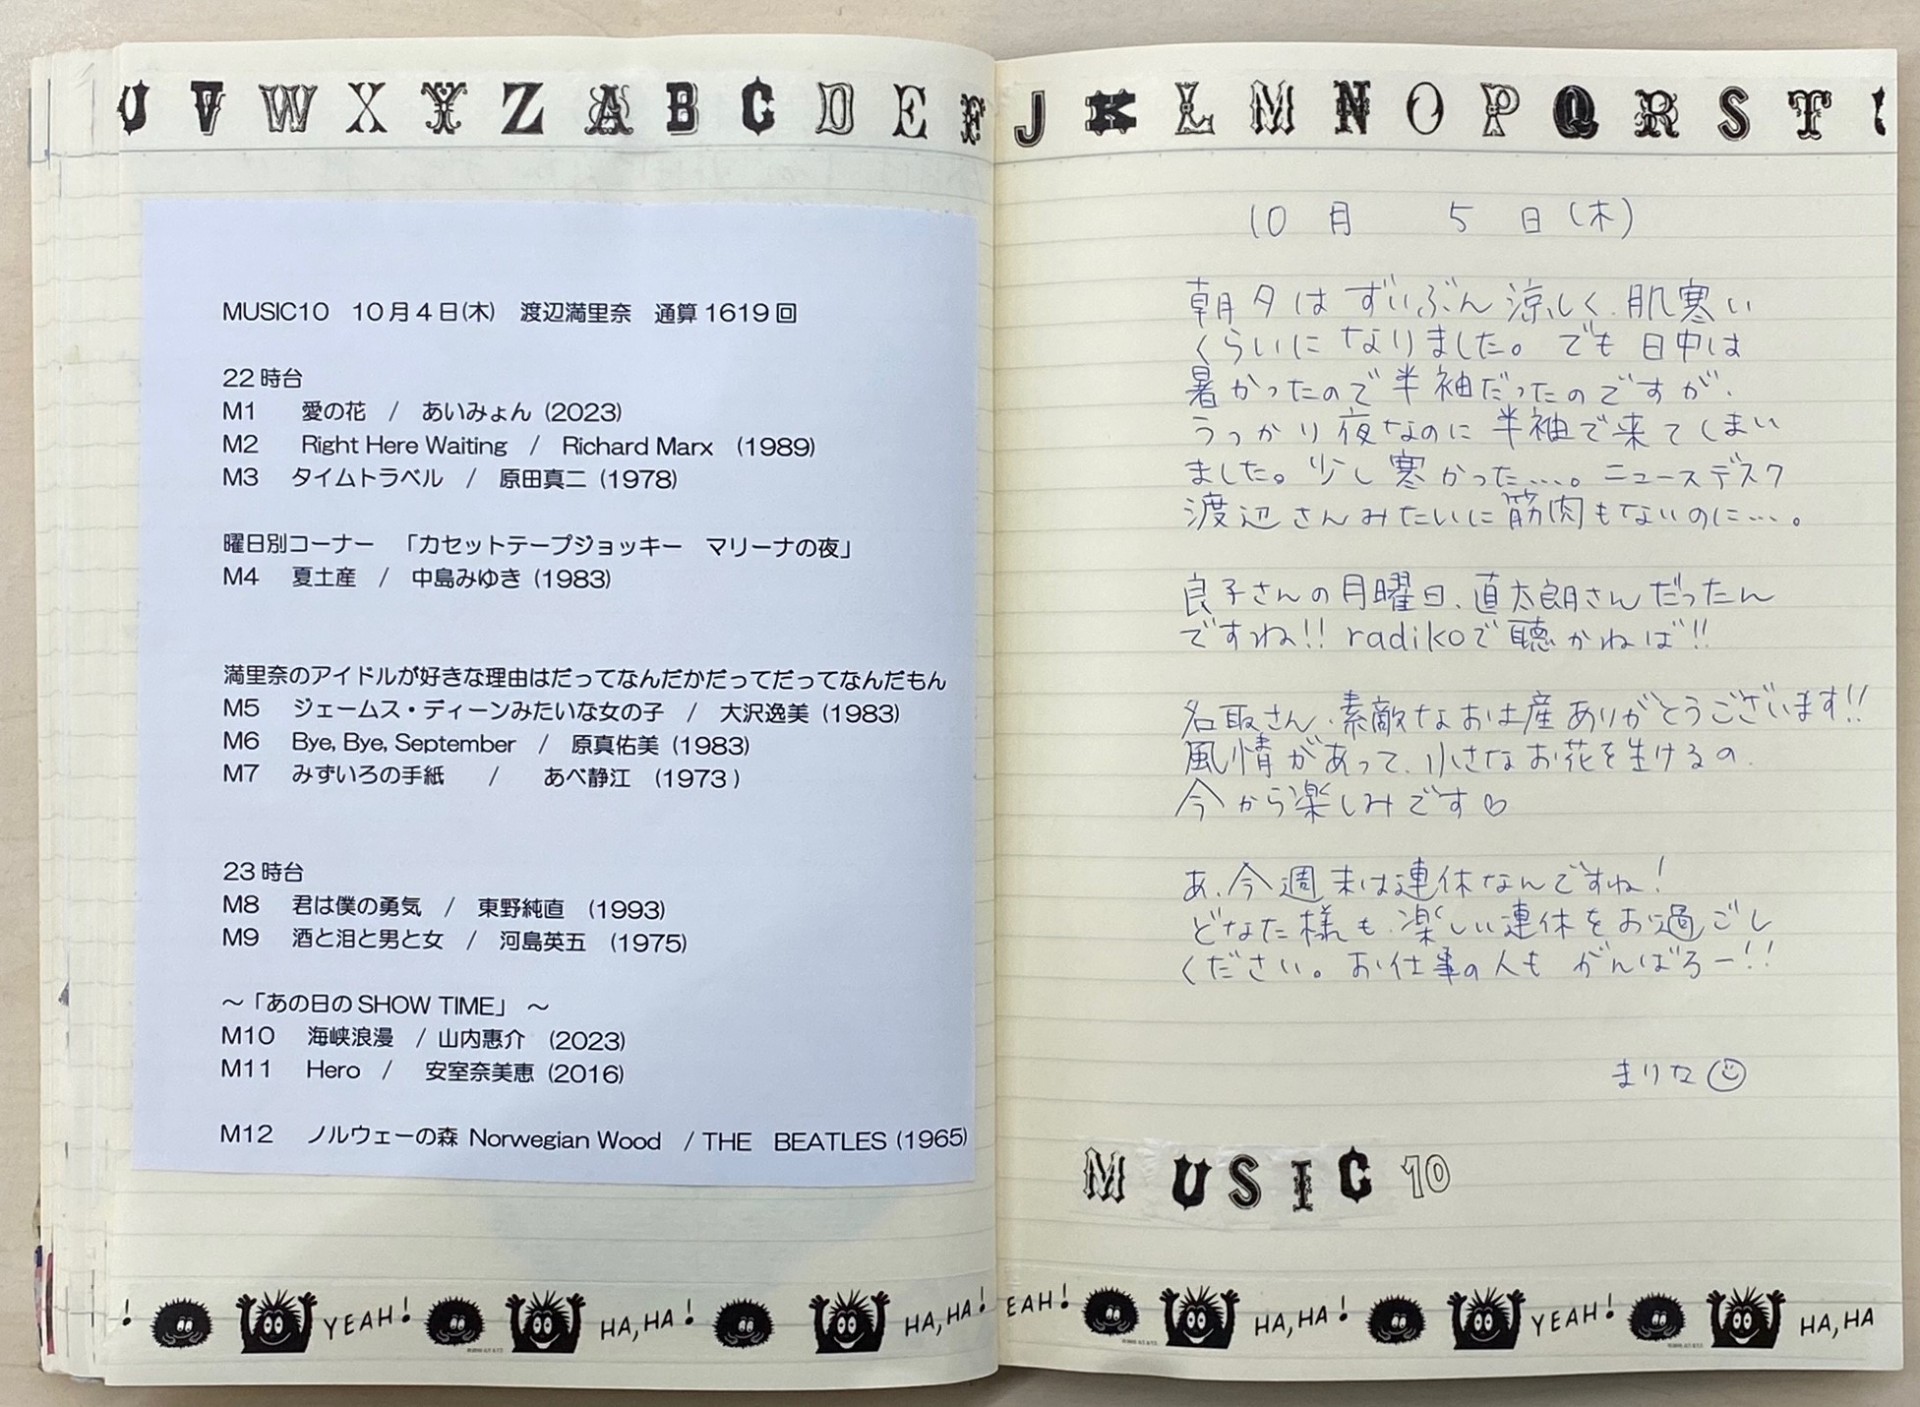 U V W X Y Z A B C D E F
MUSIC10 10月4日(木) 渡辺満里奈 通算1619回
22時台
M1 愛の花 / あいみょん (2023)
M2 Right Here Waiting / Richard Marx (1989)
M3 タイムトラベル / 原田真二 (1978)
曜日別コーナー 「カセットテープジョッキー マリーナの夜」
M4 夏土産 / 中島みゆき (1983)
満里奈のアイドルが好きな理由はだってなんだかだってだってなんだもん
M5 ジェームス・ディーンみたいな女の子 / 大沢逸美 (1983)
M6 Bye, Bye, September / 原真佑美 (1983)
M7 みずいろの手紙 / あべ静江 (1973)
23時台
M8 君は僕の勇気 / 東野純直 (1993)
M9 酒と泪と男と女 / 河島英五 (1975)
～「あの日のSHOW TIME」 ～
M10 海峡浪漫 / 山内惠介 (2023)
M11 Hero / 安室奈美恵 (2016)
M12 ノルウェーの森 Norwegian Wood / THE BEATLES (1965)
! YEAH! HA, HA! HA, HA!
J K L M N O P Q R S T
10月 5日(木)
朝夕はずいぶん涼しく、肌寒い
くらいになりました。でも日中は
暑かったので半袖だったのですが、
うっかり夜なのに半袖で来てしまい
ました。少し寒かった…。ニュースデスク
渡辺さんみたいに筋肉もないのに…。
良子さんの月曜日、直太朗さんだったん
ですね!! radikoで聴かねば!!
名取さん、素敵なお土産ありがとうございます!!
風情があって、小さなお花を生けるの、
今から楽しみです♡
あ、今週末は連休なんですね!
どなた様も、楽しい連休をお過ごし
ください。お仕事の人も がんばろー!!
まりな☺
MUSIC 10
EAH! HA, HA! YEAH! HA, HA